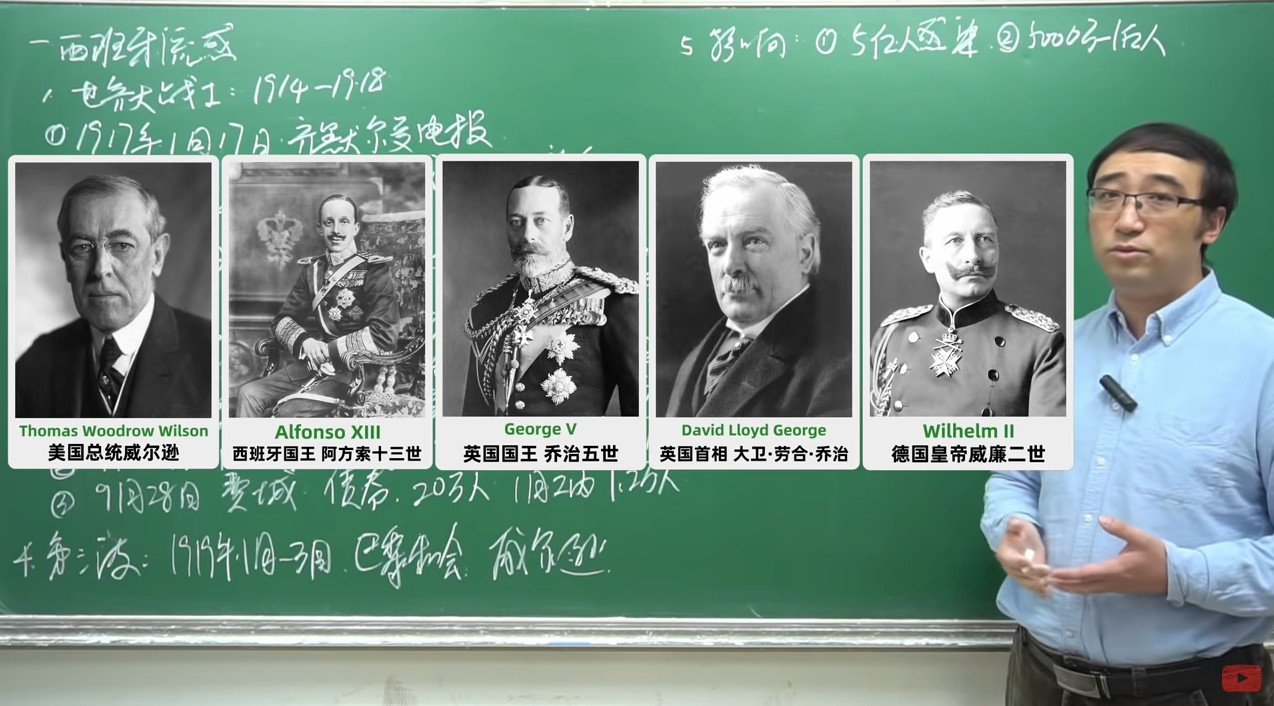 一 西班牙流感
1. 世界大战I：1914-1918
① 1917年1月17日 齐默尔曼电报
5 影响：① 5亿人感染 ② 5000万-1亿人
Thomas Woodrow Wilson
美国总统威尔逊
Alfonso XIII
西班牙国王 阿方索十三世
George V
英国国王 乔治五世
David Lloyd George
英国首相 大卫·劳合·乔治
Wilhelm II
德国皇帝威廉二世
③ 9月28日 费城 债券 20万人 1月之内 1.2万人
4. 第三波：1919年1月-3月 巴黎和会 威尔逊